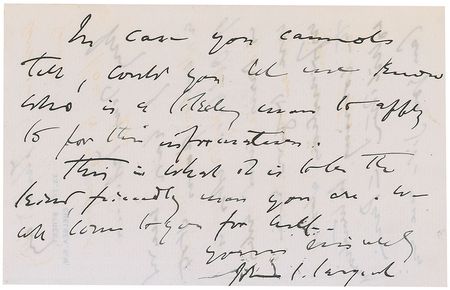 In case you cannot
tell, could you let me know
who is a likely man to apply
to for this information.
This is what it is to be the
kind friendly man you are. We
all come to you for help.
yours sincerely
John S. Sargent